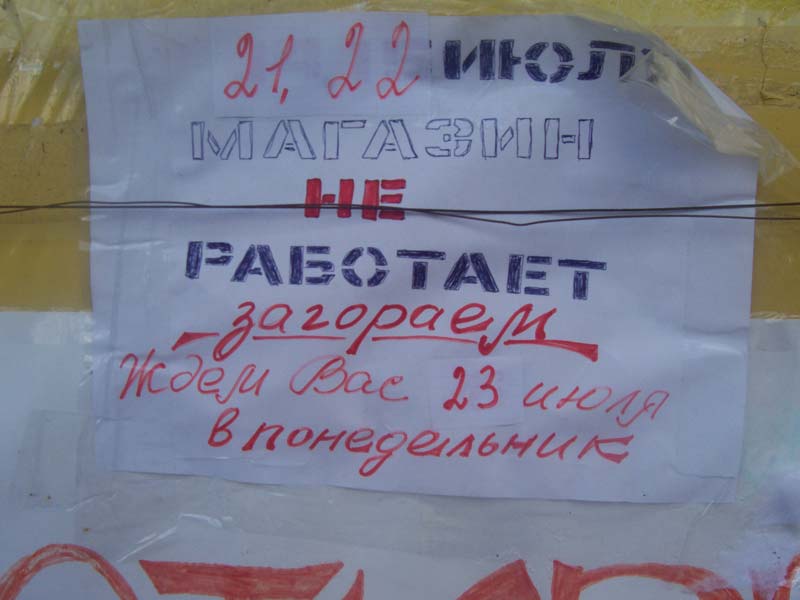 21, 22 ИЮЛЯ
МАГАЗИН
НЕ
РАБОТАЕТ
загораем
Ждем Вас 23 июля
в понедельник